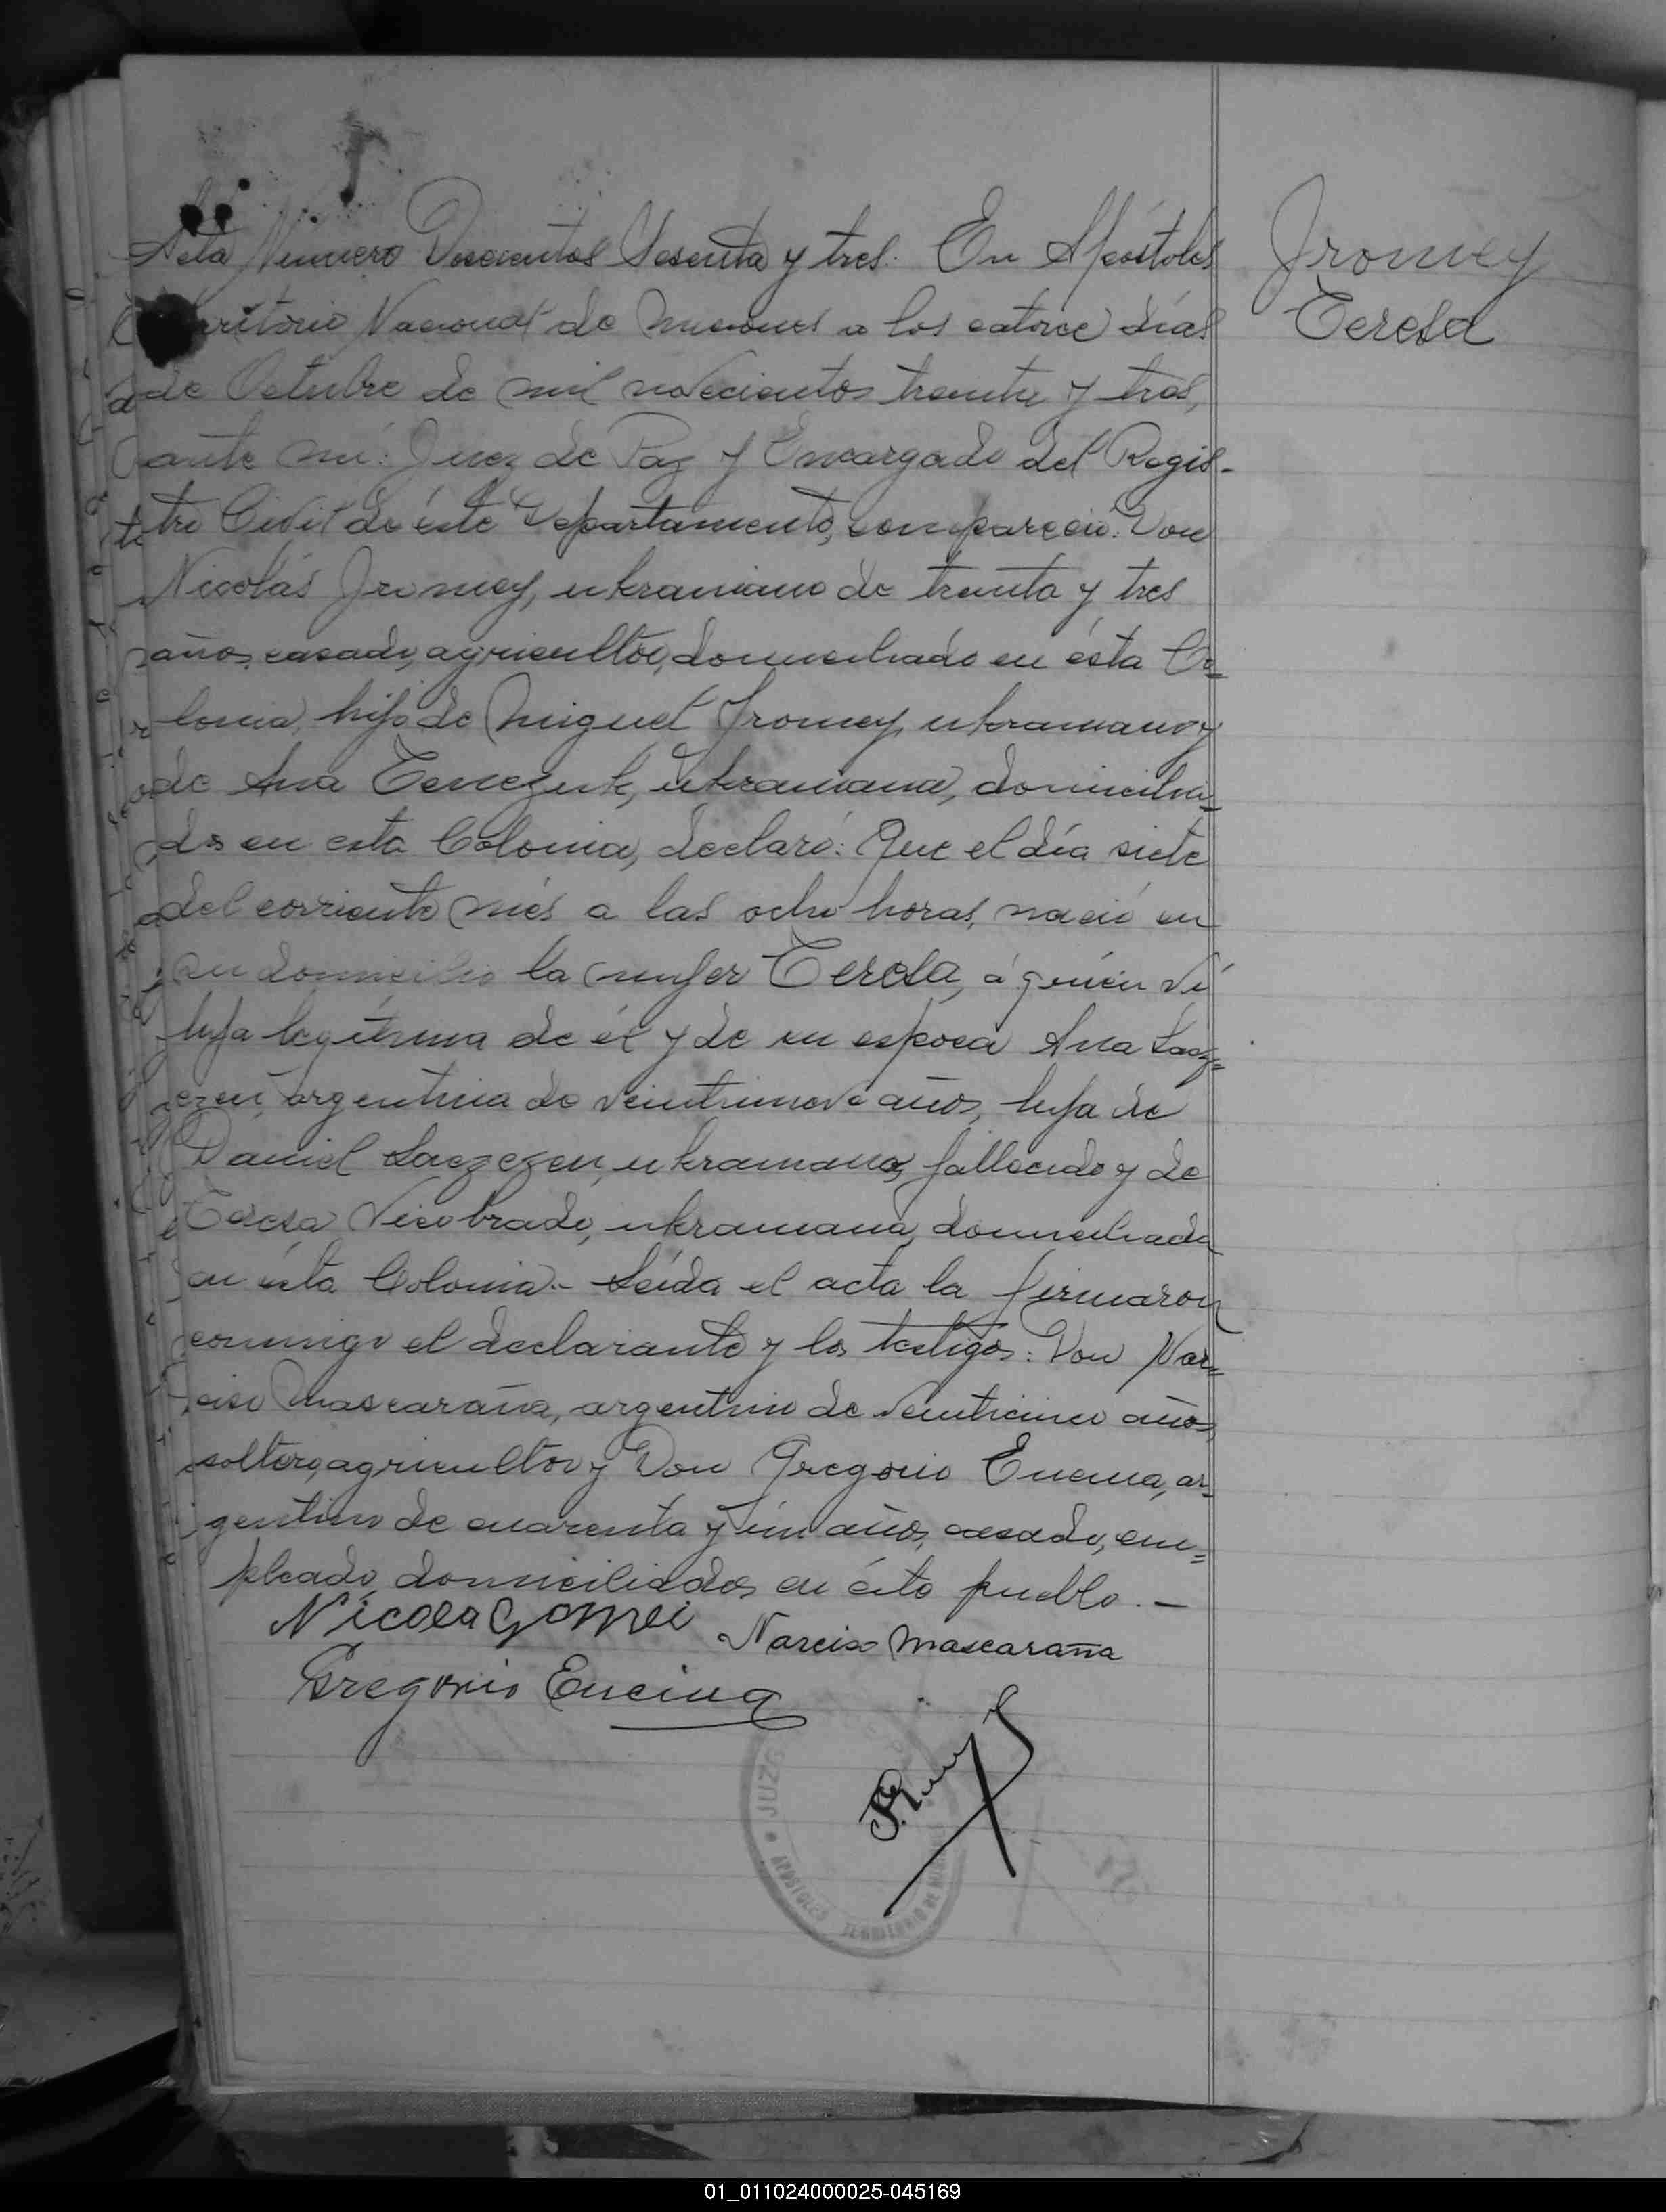 Acta Número Doscientos Sesenta y tres. En Apóstoles
Territorio Nacional de Misiones a los catorce días
de Octubre de mil novecientos treinta y tres,
ante mí: Juez de Paz y Encargado del Regis-
tro Civil de éste Departamento, compareció: Don
Nicolás Jromey, ukraniano de treinta y tres
años, casado, agricultor, domiciliado en ésta Co-
lonia, hijo de Miguel Jromey, ukraniano y
de Ana ukraniana, domicilia-
dos en esta Colonia, declaró: Que el día siete
del corriente més a las ocho horas, nació en
su domicilio la mujer Teresa, á quién ví
hija legítima de él y de su esposa Ana Laez-
ezen, argentina de veintinueve años, hija de
Daniel Laezezen, ukraniano, fallecido y de
Teresa ukraniana, domiciliada
en ésta Colonia.- Leída el acta la firmaron
conmigo el declarante y los testigos: Don Nar-
ciso Mascaraña, argentino de veinticinco años,
soltero, agricultor y Don Gregorio Encina, ar-
gentino de cuarenta y ún años, casado, em-
pleado, domiciliados en ésto pueblo.-
Narciso Mascaraña
Gregorio Encina
JUZG
APOSTOLES
Jromey
Teresa
01_011024000025-045169